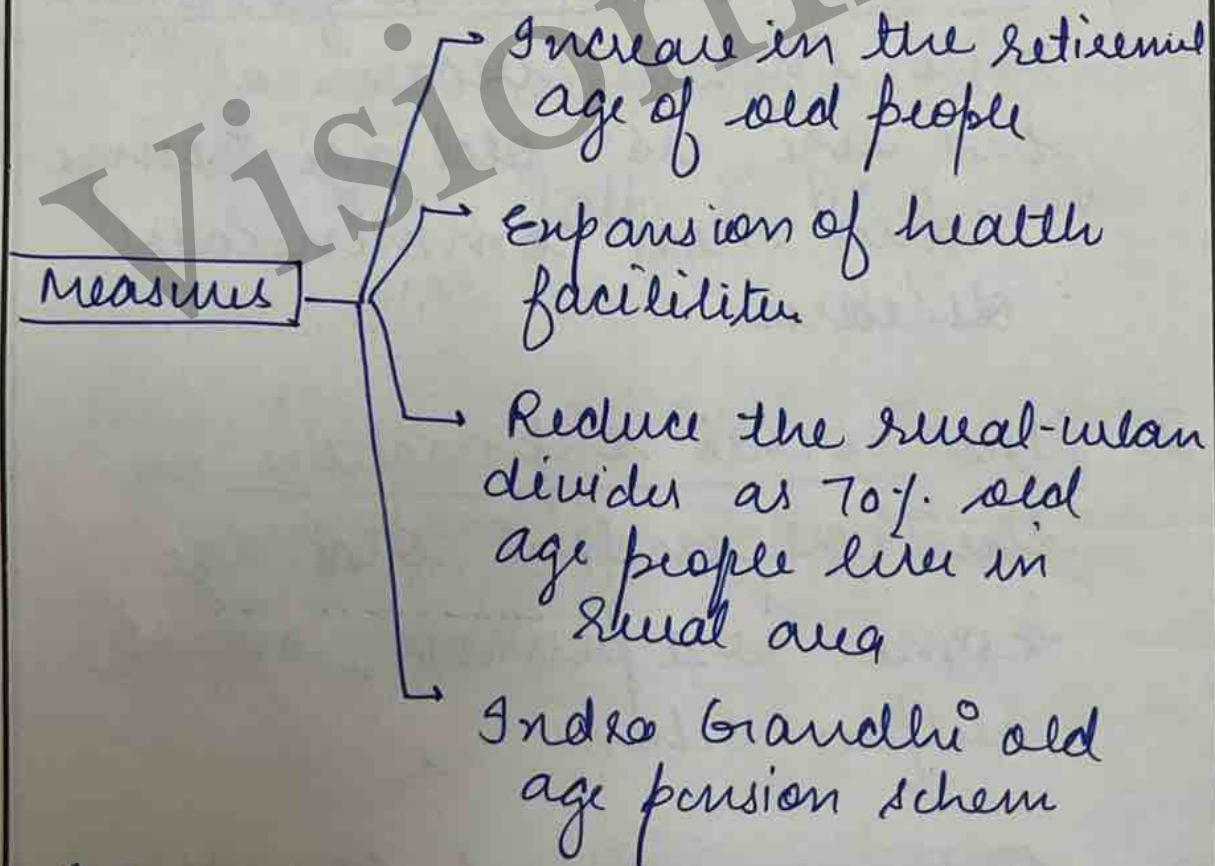 Vision
Increase in the retirement
age of old people
Expansion of health
facilities
Measures
Reduce the rural-urban
divides as 70%. old
age people live in
rural area
Indra Gandhi old
age pension schem